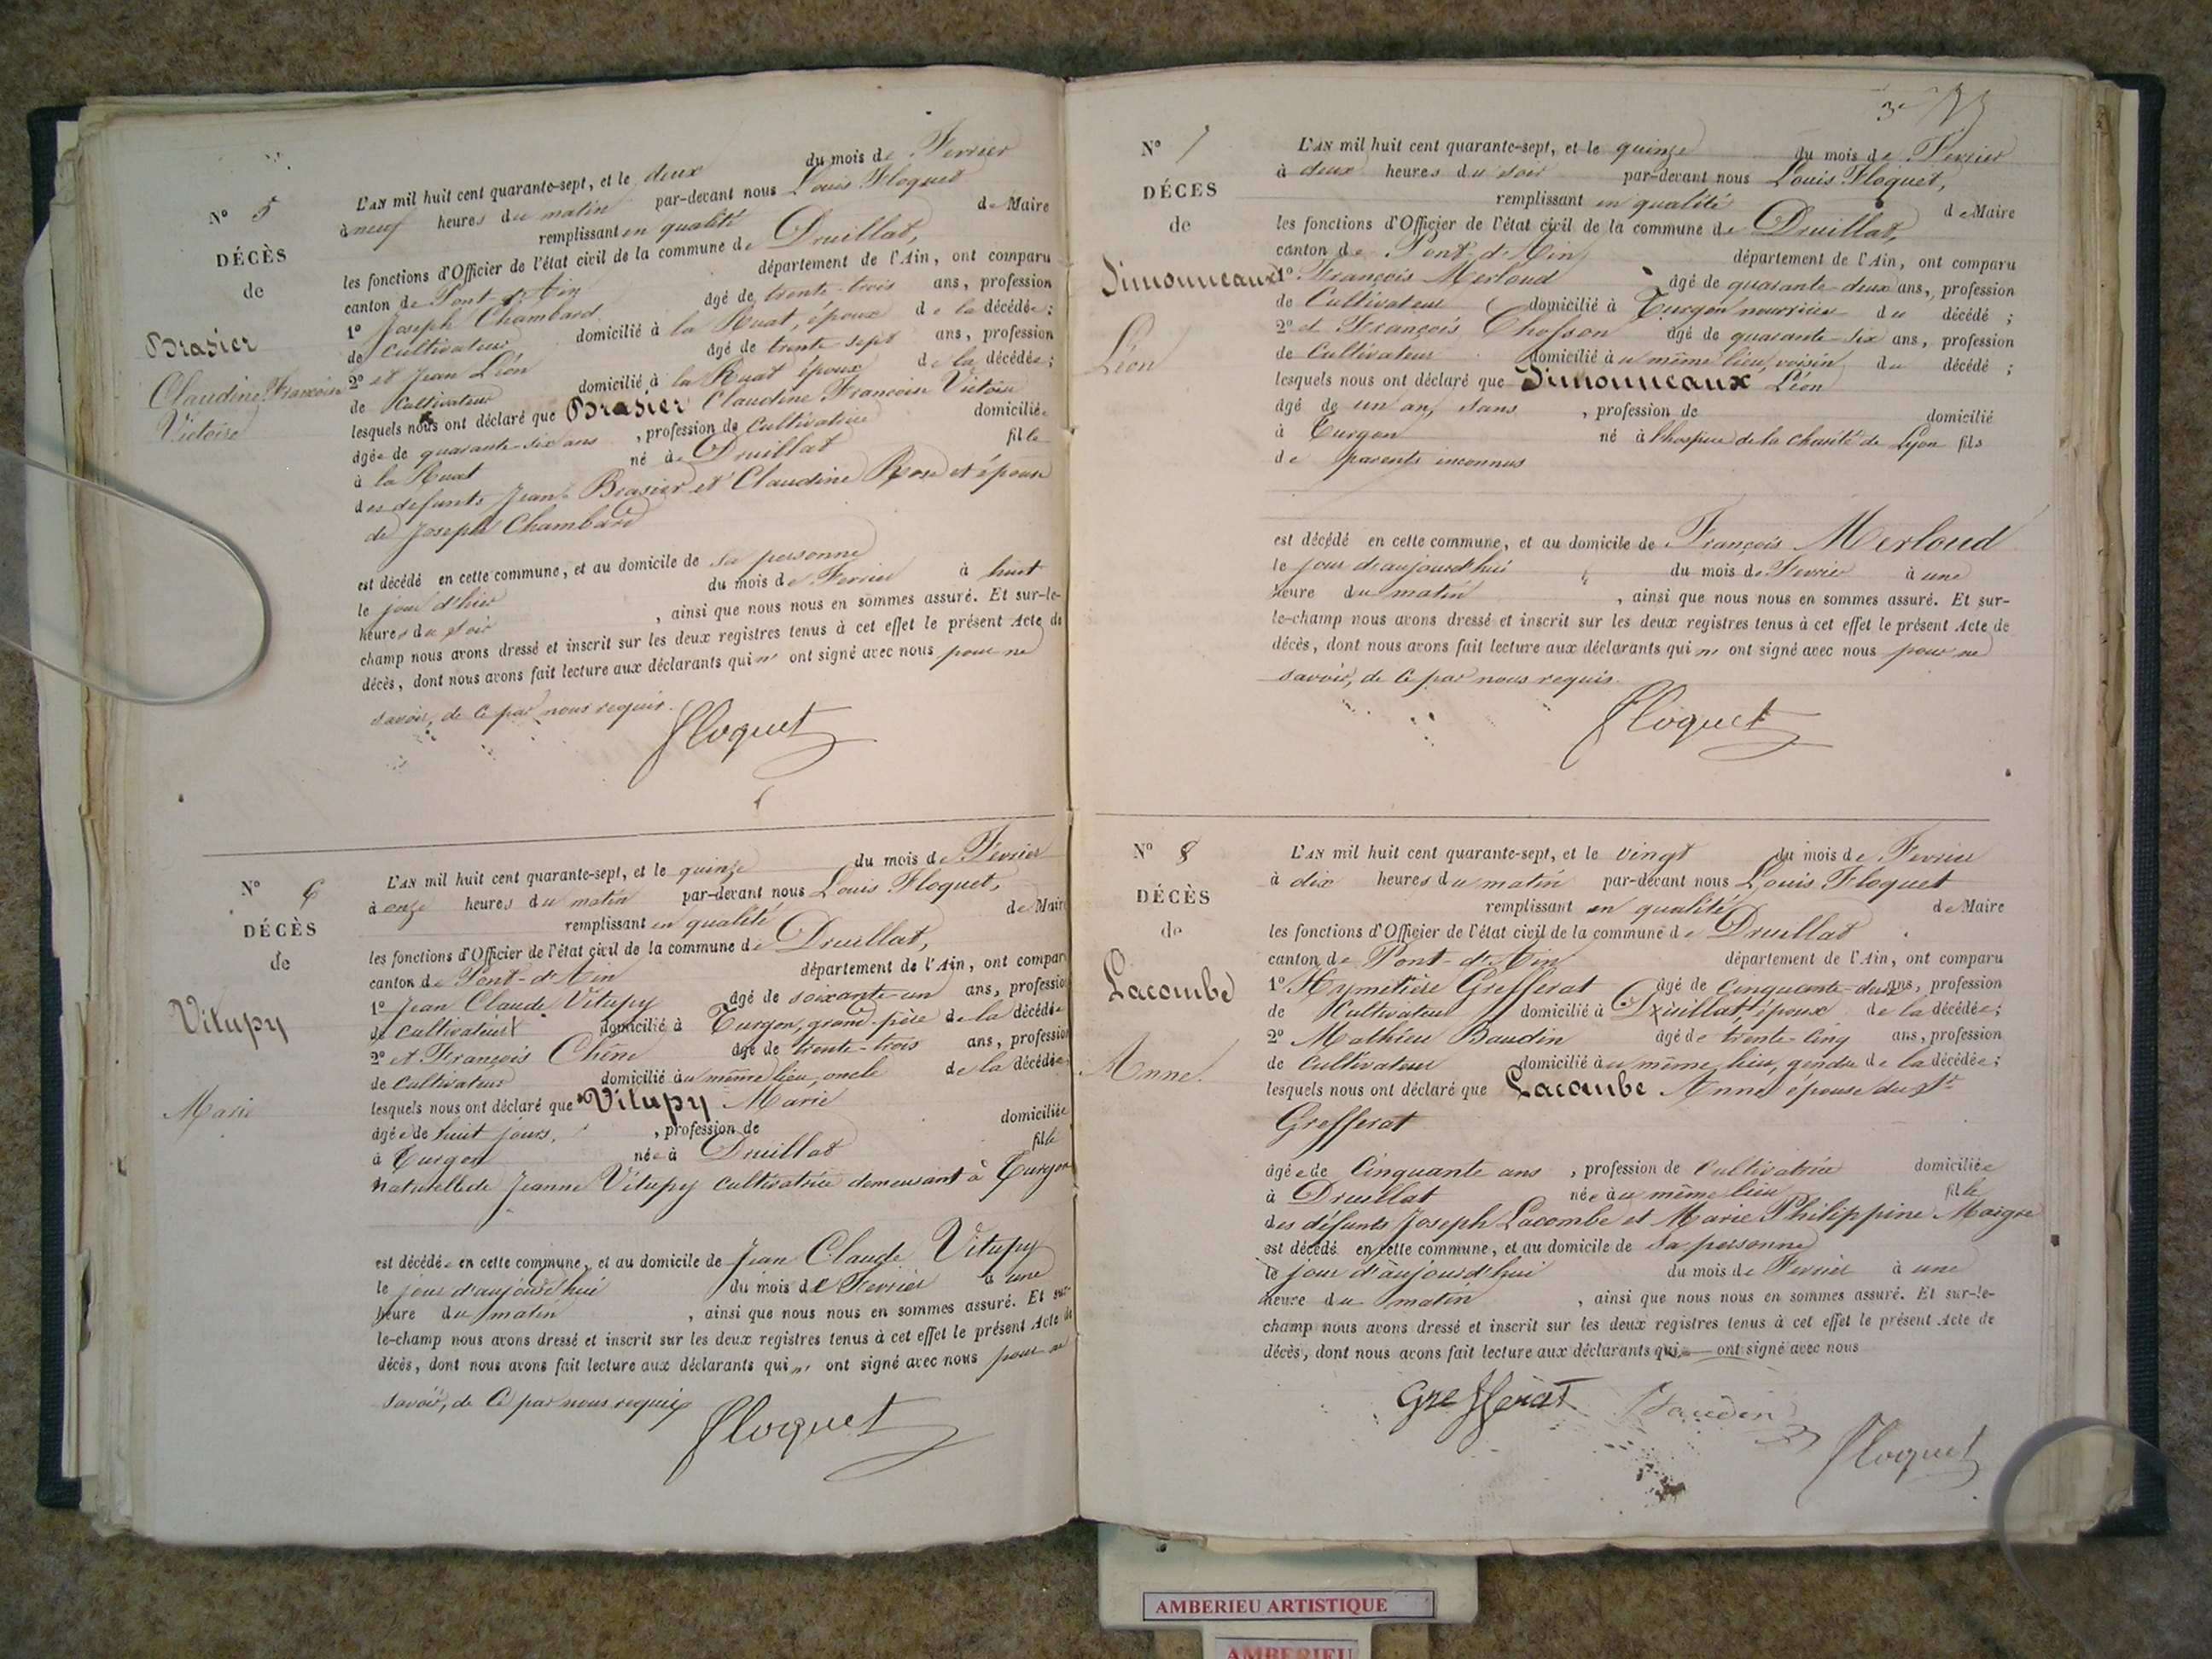 N° 5
DÉCÈS
de
Brasier
Claudine Françoise
Victoire
L'AN mil huit cent quarante-sept, et le deux du mois de Fevrier
à neuf heures du matin par-devant nous Louis Floquet
remplissant en qualité de Maire
les fonctions d'Officier de l'état civil de la commune de Druillat,
canton de Pont-d'Ain département de l'Ain, ont comparu
1° Joseph Chambard âgé de trente-trois ans, profession
de Cultivateur domicilié à la Ruat, époux de la décédée;
2° et Jean Léon âgé de trente-sept ans, profession
de Cultivateur domicilié à la Ruat époux de la décédée;
lesquels nous ont déclaré que Brasier Claudine Francoise Victoire
âgée de quarante-six ans, profession de Cultivatrice domiciliée
à la Ruat né à Druillat fille
des defunts Jean Brasier et Claudine Rose et épouse
de Joseph Chambard
est décédé en cette commune, et au domicile de sa personne
le jour d'hier du mois de Fevrier à huit
heures du soir, ainsi que nous nous en sommes assuré. Et sur-le-
champ nous avons dressé et inscrit sur les deux registres tenus à cet effet le présent Acte de
décès, dont nous avons fait lecture aux déclarants qui n' ont signé avec nous pour ne
savoir, de ce par nous requis.
Floquet
N° 6
DÉCÈS
de
Vitupy
Marie
L'AN mil huit cent quarante-sept, et le quinze du mois de Fevrier
à onze heures du matin par-devant nous Louis Floquet,
remplissant en qualité de Maire
les fonctions d'Officier de l'état civil de la commune de Druillat,
canton de Pont-d'Ain département de l'Ain, ont compar
1° Jean Claude Vitupy âgé de soixante-un ans, professio
de Cultivateur domicilié à Turgon, grand-père de la décédée
2° et François Chêne âgé de trente-trois ans, professio
de Cultivateur domicilié au même lieu, oncle de la décédée
lesquels nous ont déclaré que Vitupy Marie
âgée de huit jours, , profession de domiciliée
à Turgon née à Druillat fille
naturelle de Jeanne Vitupy cultivatrice demeurant à Turgon
est décédée en cette commune, et au domicile de Jean Claude Vitupy
le jour d'aujourd'hui du mois de Fevrier à une
heure du matin, ainsi que nous nous en sommes assuré. Et sur-
le-champ nous avons dressé et inscrit sur les deux registres tenus à cet effet le présent Acte de
décès, dont nous avons fait lecture aux déclarants qui n' ont signé avec nous pour ne
savoir, de ce par nous requis
Floquet
N° 7
DÉCES
de
Simonneaux
Léon
L'AN mil huit cent quarante-sept, et le quinze du mois de Fevrier
à deux heures du soir par-devant nous Louis Floquet,
remplissant en qualité de Maire
les fonctions d'Officier de l'état civil de la commune de Druillat,
canton de Pont-d'Ain département de l'Ain, ont comparu
1° François Merloud âgé de quarante-deux ans, profession
de Cultivateur domicilié à Turgon nourricier du décédé;
2° et François Chosson âgé de quarante-six ans, profession
de Cultivateur domicilié au même lieu, voisin du décédé;
lesquels nous ont déclaré que Simonneaux Léon
âgé de un an, sans, profession de domicilié
à Turgon né à l'hospice de la charité de Lyon fils
de parents inconnus
est décédé en cette commune, et au domicile de François Merloud
le jour d'aujourd'hui du mois de Fevrier à une
heure du matin, ainsi que nous nous en sommes assuré. Et sur-
le-champ nous avons dressé et inscrit sur les deux registres tenus à cet effet le présent Acte de
décès, dont nous avons fait lecture aux déclarants qui n' ont signé avec nous pour ne
savoir, de ce par nous requis.
Floquet
N° 8
DÉCÈS
de
Lacombe
Anne.
L'AN mil huit cent quarante-sept, et le vingt du mois de Fevrier
à dix heures du matin par-devant nous Louis Floquet
remplissant en qualité de Maire
les fonctions d'Officier de l'état civil de la commune de Druillat
canton de Pont-d'Ain département de l'Ain, ont comparu
1° Hymetière Grefferat âgé de Cinquante-deux ans, profession
de Cultivateur domicilié à Druillat époux de la décédée;
2° Mathieu Baudin âgé de trente-cinq ans, profession
de Cultivateur domicilié au même lieu, gendre de la décédée;
lesquels nous ont déclaré que Lacombe Anne épouse du St
Grefferat
âgée de Cinquante ans, profession de Cultivatrice domiciliée
à Druillat née au même lieu fille
des défunts Joseph Lacombe et Marie Philippine Maigre
est décédé en cette commune, et au domicile de sa personne
le jour d'aujourd'hui du mois de Fevrier à une
heure du matin, ainsi que nous nous en sommes assuré. Et sur-le-
champ nous avons dressé et inscrit sur les deux registres tenus à cet effet le présent Acte de
décès, dont nous avons fait lecture aux déclarants qui ont signé avec nous
Grefferat Baudin
Floquet
AMBERIEU ARTISTIQUE
AMBERIEU